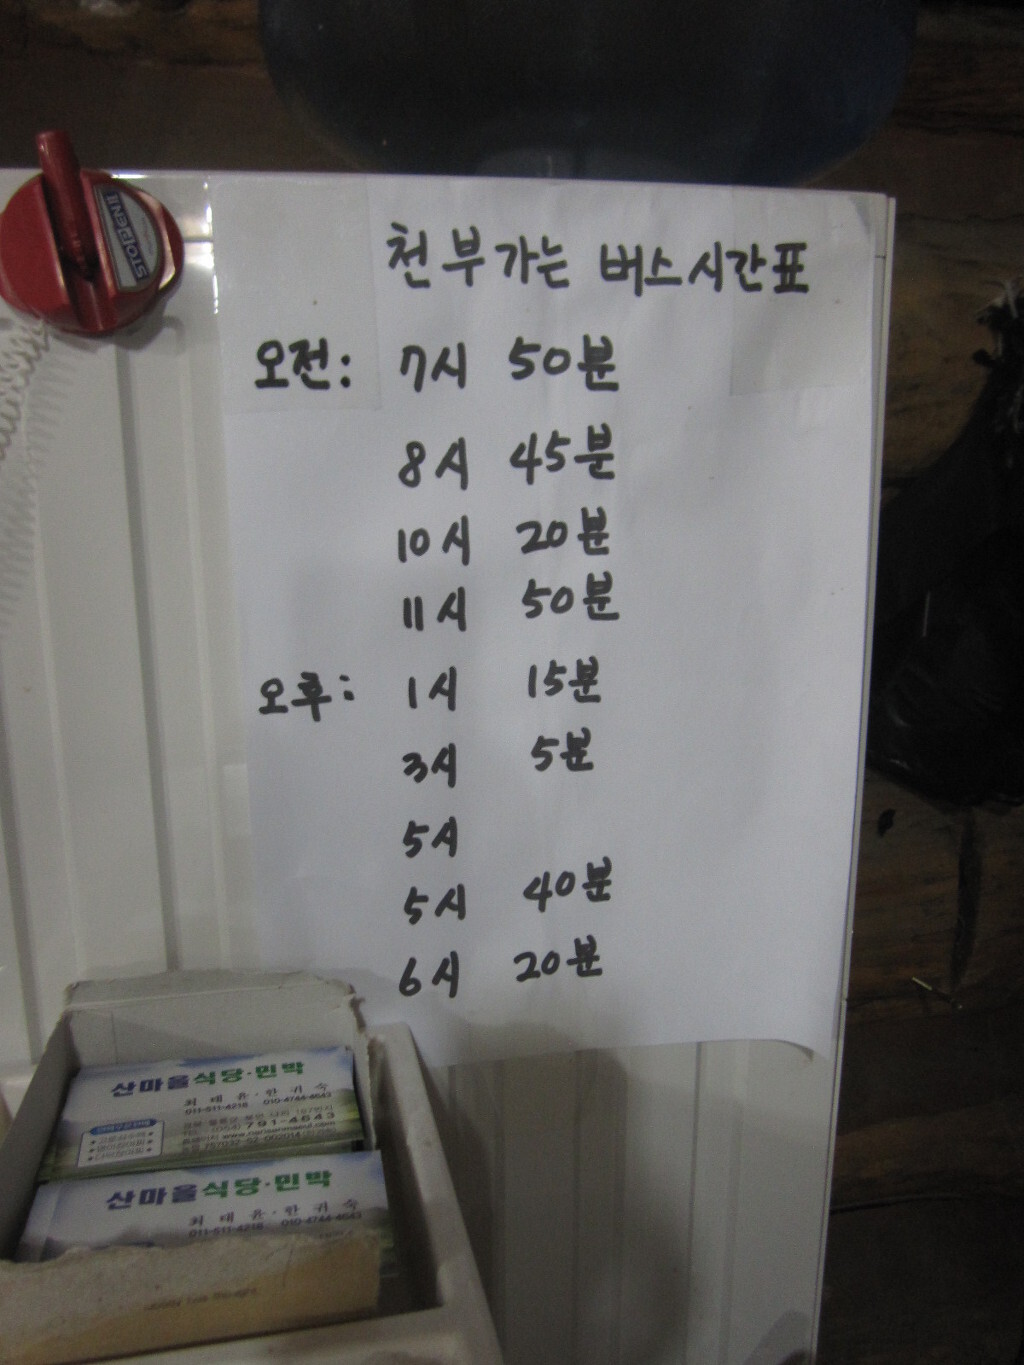 천부가는 버스시간표
오전: 7시 50분
8시 45분
10시 20분
11시 50분
오후: 1시 15분
3시 5분
5시
5시 40분
6시 20분
STOP
OPEN
산마을식당·민박
최태윤·한귀숙
011-511-4216 010-4744-4643
791-4643
산마을식당·민박
최태윤·한귀숙
011-511-4216 010-4744-4643